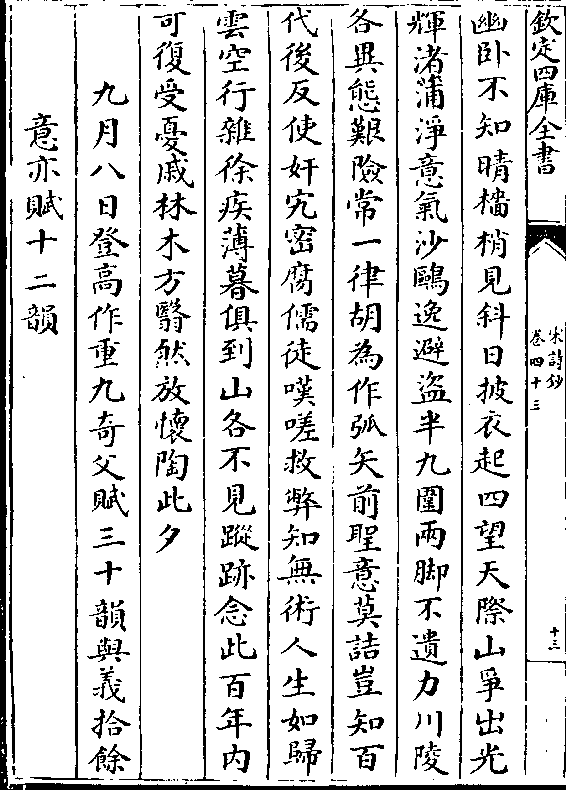 欽定四庫全書
宋詩鈔
卷四十三
十三
幽卧不知晴檣梢見斜日披衣起四望天際山爭出光
輝渚蒲淨意氣沙鷗逸避盜半九圍兩脚不遺力川陵
各異態艱險常一律胡為作弧矢前聖意莫詰豈知百
代後反使奸宄密腐儒徒嘆嗟救弊知無術人生如歸
雲空行雜徐疾薄暮俱到山各不見蹤跡念此百年内
可復受憂戚林木方翳然放懷陶此夕
九月八日登高作重九奇父賦三十韻與義拾餘
意亦賦十二韻